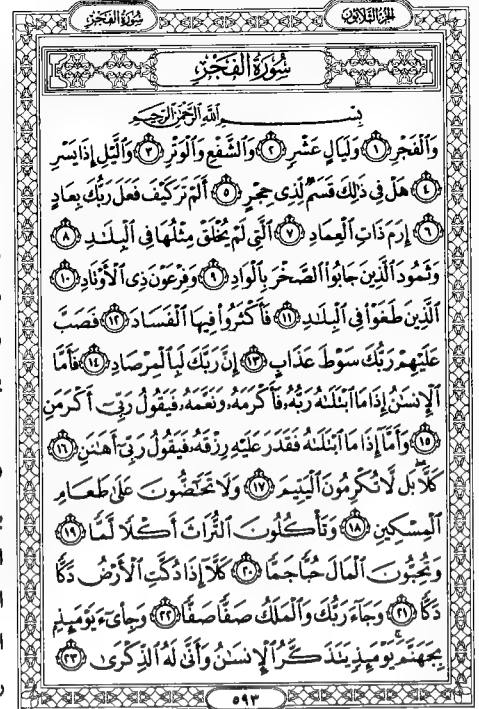 الجزء الثلاثون
سورة الفجر
سورة الفجر
بِسْمِ ٱللَّهِ ٱلرَّحْمَٰنِ ٱلرَّحِيمِ
وَٱلْفَجْرِ ١ وَلَيَالٍ عَشْرٍ ٢ وَٱلشَّفْعِ وَٱلْوَتْرِ ٣ وَٱلَّيْلِ إِذَا يَسْرِ
٤ هَلْ فِى ذَٰلِكَ قَسَمٌ لِّذِى حِجْرٍ ٥ أَلَمْ تَرَ كَيْفَ فَعَلَ رَبُّكَ بِعَادٍ
٦ إِرَمَ ذَاتِ ٱلْعِمَادِ ٧ ٱلَّتِى لَمْ يُخْلَقْ مِثْلُهَا فِى ٱلْبِلَٰدِ ٨
وَثَمُودَ ٱلَّذِينَ جَابُوا۟ ٱلصَّخْرَ بِٱلْوَادِ ٩ وَفِرْعَوْنَ ذِى ٱلْأَوْتَادِ ١٠
ٱلَّذِينَ طَغَوْا۟ فِى ٱلْبِلَٰدِ ١١ فَأَكْثَرُوا۟ فِيهَا ٱلْفَسَادَ ١٢ فَصَبَّ
عَلَيْهِمْ رَبُّكَ سَوْطَ عَذَابٍ ١٣ إِنَّ رَبَّكَ لَبِٱلْمِرْصَادِ ١٤ فَأَمَّا
ٱلْإِنسَٰنُ إِذَا مَا ٱبْتَلَىٰهُ رَبُّهُۥ فَأَكْرَمَهُۥ وَنَعَّمَهُۥ فَيَقُولُ رَبِّىٓ أَكْرَمَنِ
١٥ وَأَمَّآ إِذَا مَا ٱبْتَلَىٰهُ فَقَدَرَ عَلَيْهِ رِزْقَهُۥ فَيَقُولُ رَبِّىٓ أَهَٰنَنِ ١٦
كَلَّا ۖ بَل لَّا تُكْرِمُونَ ٱلْيَتِيمَ ١٧ وَلَا تَحَٰٓضُّونَ عَلَىٰ طَعَامِ
ٱلْمِسْكِينِ ١٨ وَتَأْكُلُونَ ٱلتُّرَاثَ أَكْلًا لَّمًّا ١٩
وَتُحِبُّونَ ٱلْمَالَ حُبًّا جَمًّا ٢٠ كَلَّآ إِذَا دُكَّتِ ٱلْأَرْضُ دَكًّا
دَكًّا ٢١ وَجَآءَ رَبُّكَ وَٱلْمَلَكُ صَفًّا صَفًّا ٢٢ وَجِا۟ىٓءَ يَوْمَئِذٍۭ
بِجَهَنَّمَ ۚ يَوْمَئِذٍ يَتَذَكَّرُ ٱلْإِنسَٰنُ وَأَنَّىٰ لَهُ ٱلذِّكْرَىٰ ٢٣
٥٩٣